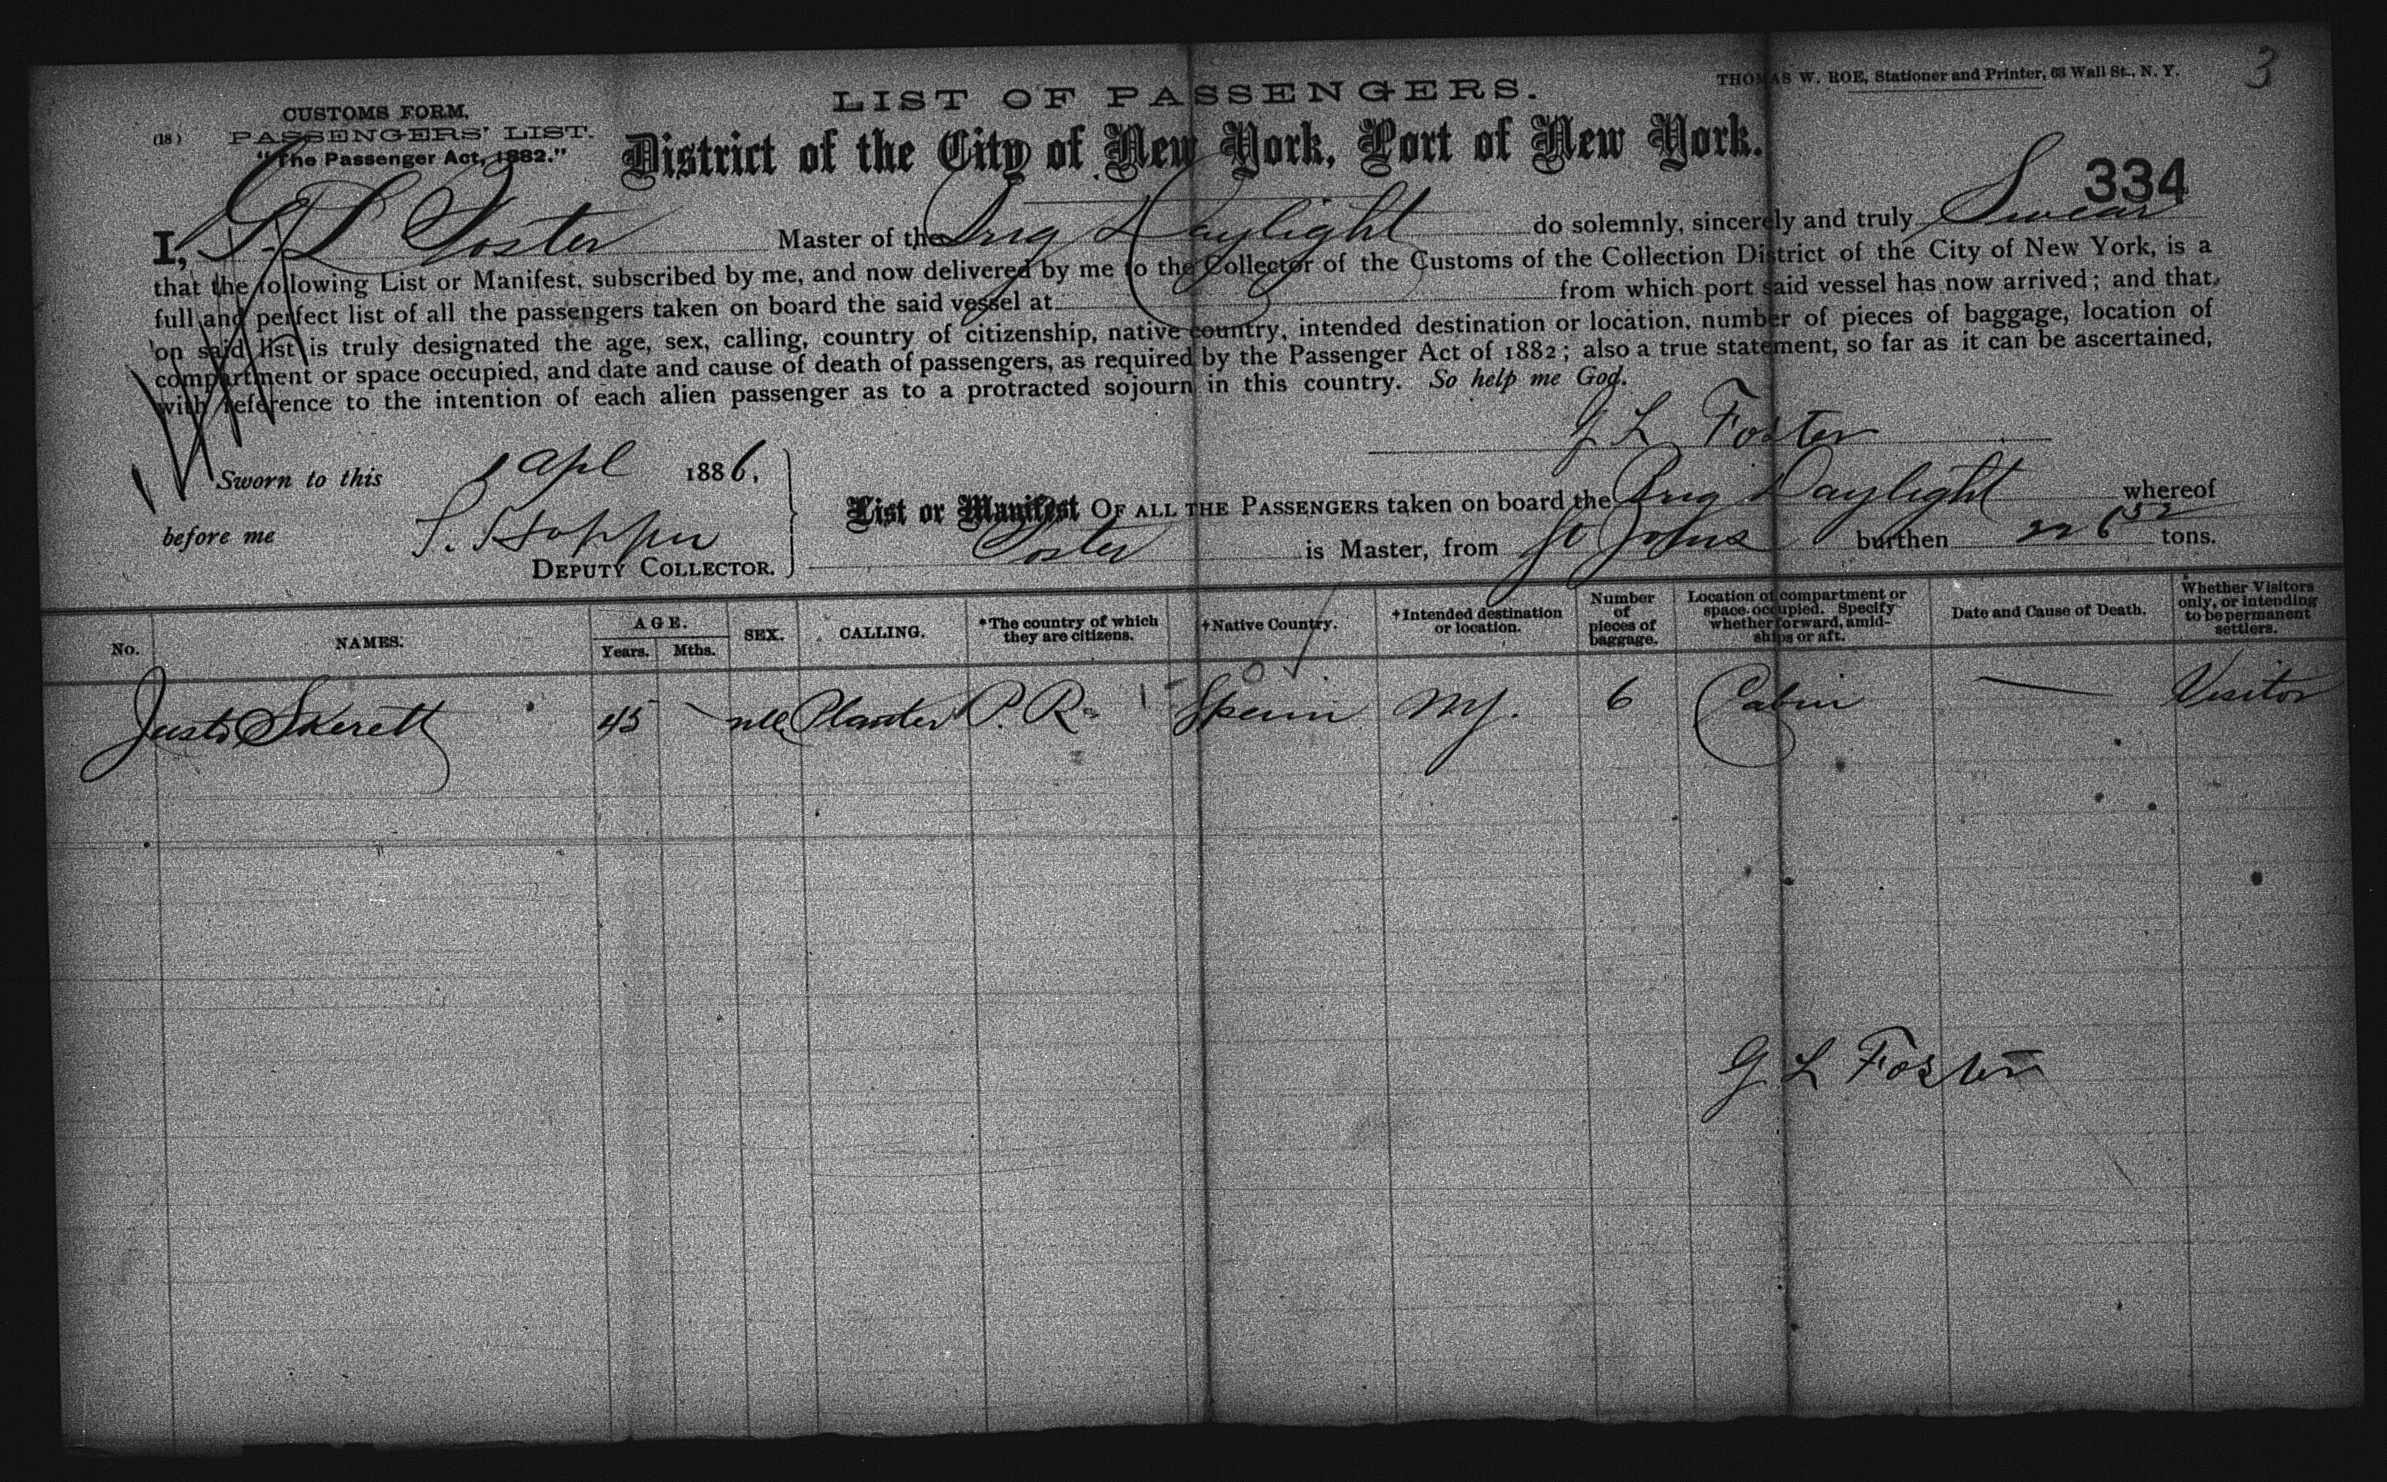 3
THOMAS W. ROE, Stationer and Printer, 63 Wall St., N. Y.
LIST OF PASSENGERS.
CUSTOMS FORM,
(18) PASSENGERS' LIST.
"The Passenger Act, 1882."
District of the City of New York, Port of New York.
334
I, G. L Foster Master of the Brig Daylight do solemnly, sincerely and truly Swear
that the following List or Manifest, subscribed by me, and now delivered by me to the Collector of the Customs of the Collection District of the City of New York, is a
full and perfect list of all the passengers taken on board the said vessel at from which port said vessel has now arrived; and that
on said list is truly designated the age, sex, calling, country of citizenship, native country, intended destination or location, number of pieces of baggage, location of
compartment or space occupied, and date and cause of death of passengers, as required by the Passenger Act of 1882; also a true statement, so far as it can be ascertained,
with reference to the intention of each alien passenger as to a protracted sojourn in this country. So help me God.
G L Foster
Sworn to this Apl 1886,
before me
DEPUTY COLLECTOR.
List or Manifest OF ALL THE PASSENGERS taken on board the Brig Daylight whereof
Foster is Master, from St Johns burthen 226 52 tons.
No. NAMES. AGE. Years. Mths. SEX. CALLING. *The country of which they are citizens. †Native Country. †Intended destination or location. Number of pieces of baggage. Location of compartment or space occupied. Specify whether forward, amidships or aft. Date and Cause of Death. Whether Visitors only, or intending to be permanent settlers.
Justo Skerett 45 Planter P. R. Spain NY. 6 Cabin Visitor
G L Foster